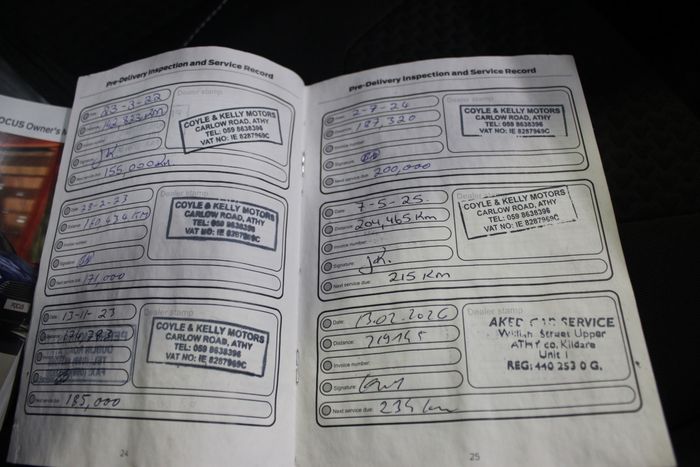 OCUS Owner's M
FOCUS
Pre-Delivery Inspection and Service Record
Date: 23-3-22
Dealer stamp
142,323 KM
COYLE & KELLY MOTORS
CARLOW ROAD, ATHY
TEL: 059 8638396
VAT NO: IE 8287969C
Next service due: 155,000 Km
Date: 23-2-23
Dealer stamp
Distance: 160,434 KM
COYLE & KELLY MOTORS
CARLOW ROAD, ATHY
TEL: 059 8638396
VAT NO: IE 8287969C
Invoice number:
Signature:
Next service due: 171,000
Date: 13-11-23
Dealer stamp
COYLE & KELLY MOTORS
CARLOW ROAD, ATHY
TEL: 059 8638396
VAT NO: IE 8287969C
Next service due: 185,000
24
Pre-Delivery Inspection and Service Record
Date: 2-7-24
Dealer stamp
187 320
COYLE & KELLY MOTORS
CARLOW ROAD, ATHY
TEL: 059 8638396
VAT NO: IE 8287969C
Signature:
Next service due: 200,000
Date: 7-5-25.
Distance: 204,465 Km
COYLE & KELLY MOTORS
CARLOW ROAD, ATHY
TEL: 059 8638396
VAT NO: IE 8287969C
Invoice number:
Signature:
Next service due: 215 Km
Date: 13.02.2026
Dealer stamp
Distance: 219145
SERVICE
Street Upper
ATHY co. Kildare
Unit 1
REG: 440 253 0 G.
Invoice number:
Signature:
Next service due: 234 km
25